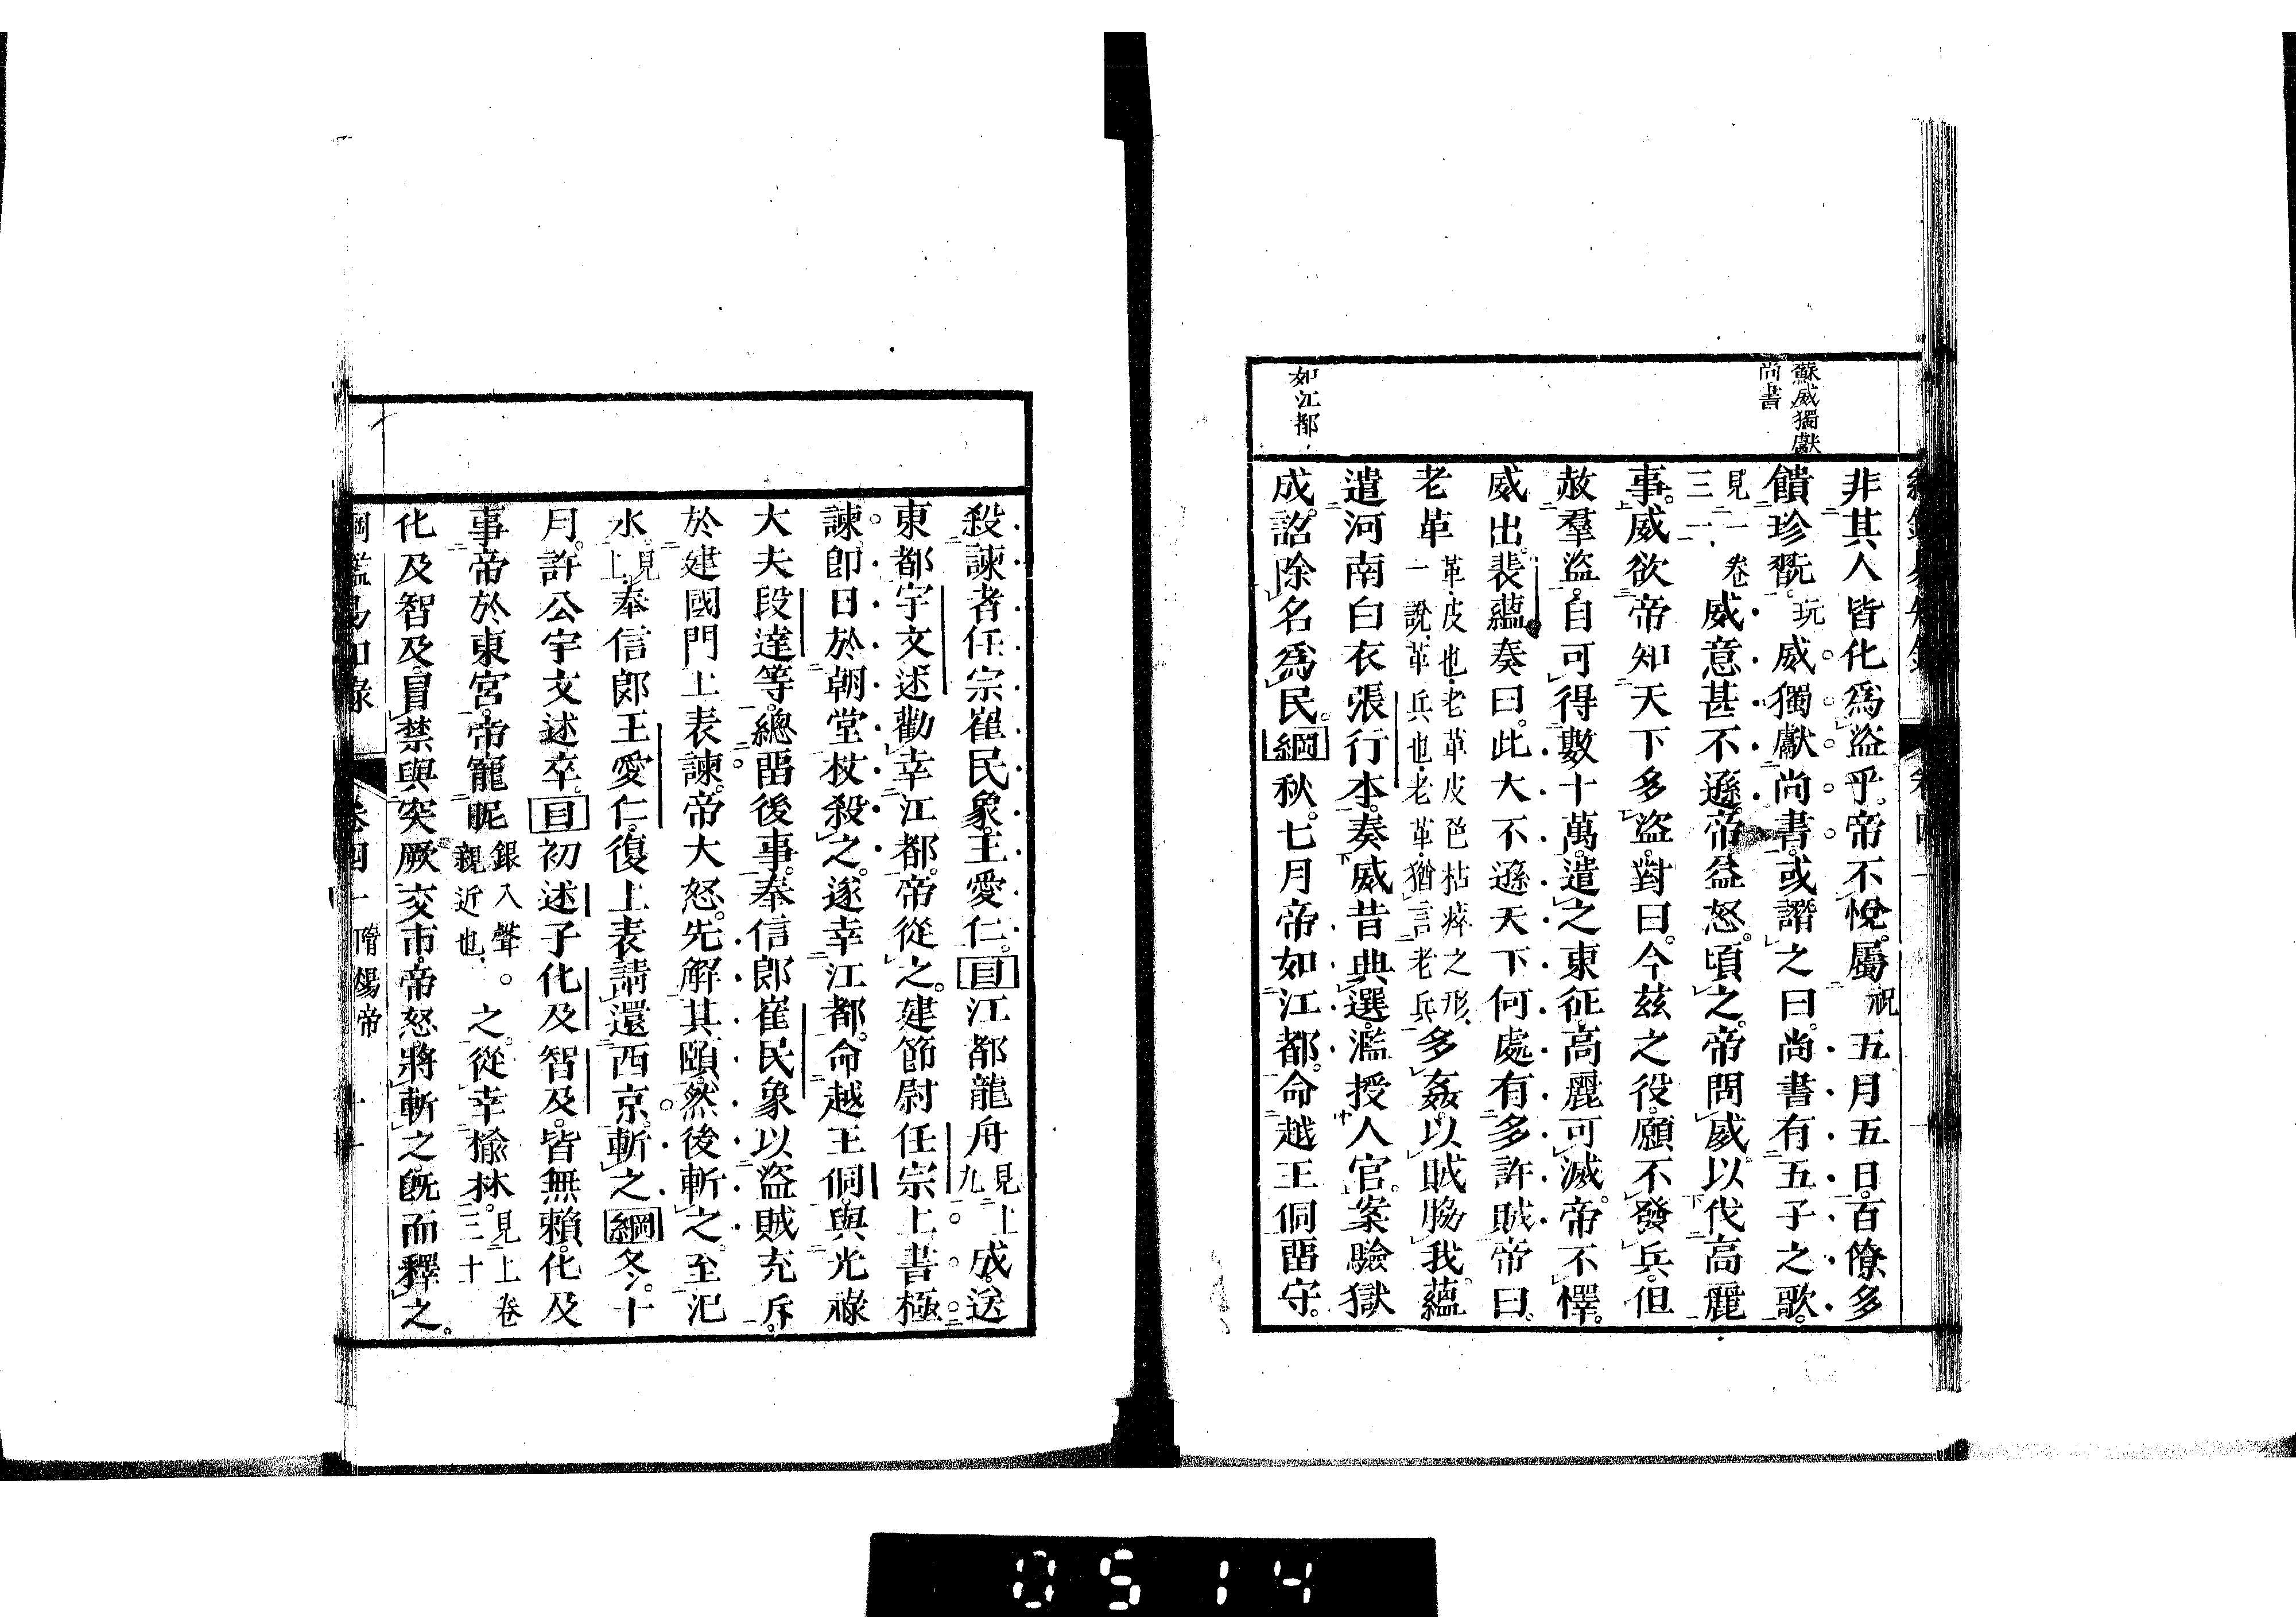 蘇威獨獻
尚書
如江都
非其人皆化爲盜乎。帝不悅。屬祝五月五日。百僚多
餽珍翫。玩威獨獻尚書。或譖之曰。尚書有五子之歌。
見一卷三一威意甚不遜。帝益怒。頃之。帝問威以伐高麗
事。威欲帝知天下多盜。對曰。今茲之役。願不發兵。但
赦羣盜。自可得數十萬。遣之東征。高麗可滅。帝不懌。
威出。裴蘊奏曰。此大不遜。天下何處有多許賊。帝曰。
老革革皮也。老革皮色枯瘁之形。一說革兵也。老革猶言老兵多姦。以賊脇我。蘊
遣河南白衣張行本。奏威昔典選。濫授人官。案驗獄
成。詔除名爲民。綱秋。七月帝如江都。命越王侗畱守。
殺諫者任宗崔民象。王愛仁。目江都龍舟見上九成。送
東都。宇文述勸幸江都。帝從之。建節尉任宗上書極
諫。卽日於朝堂杖殺之。遂幸江都。命越王侗。與光祿
大夫段達等。總畱後事。奉信郎崔民象以盜賊充斥。
於建國門上表諫。帝大怒。先解其頤。然後斬之。至汜
水。見上奉信郎王愛仁。復上表請還西京。斬之。綱冬。十
月。許公宇文述卒。目初述子化及智及。皆無賴。化及
事帝於東宮。帝寵昵銀入聲。親近也之。從幸楡林。見上卷三十
化及智及。冒禁與突厥交市。帝怒。將斬之。旣而釋之。
綱鑑易知錄 卷四十 隋煬帝 十一
0514